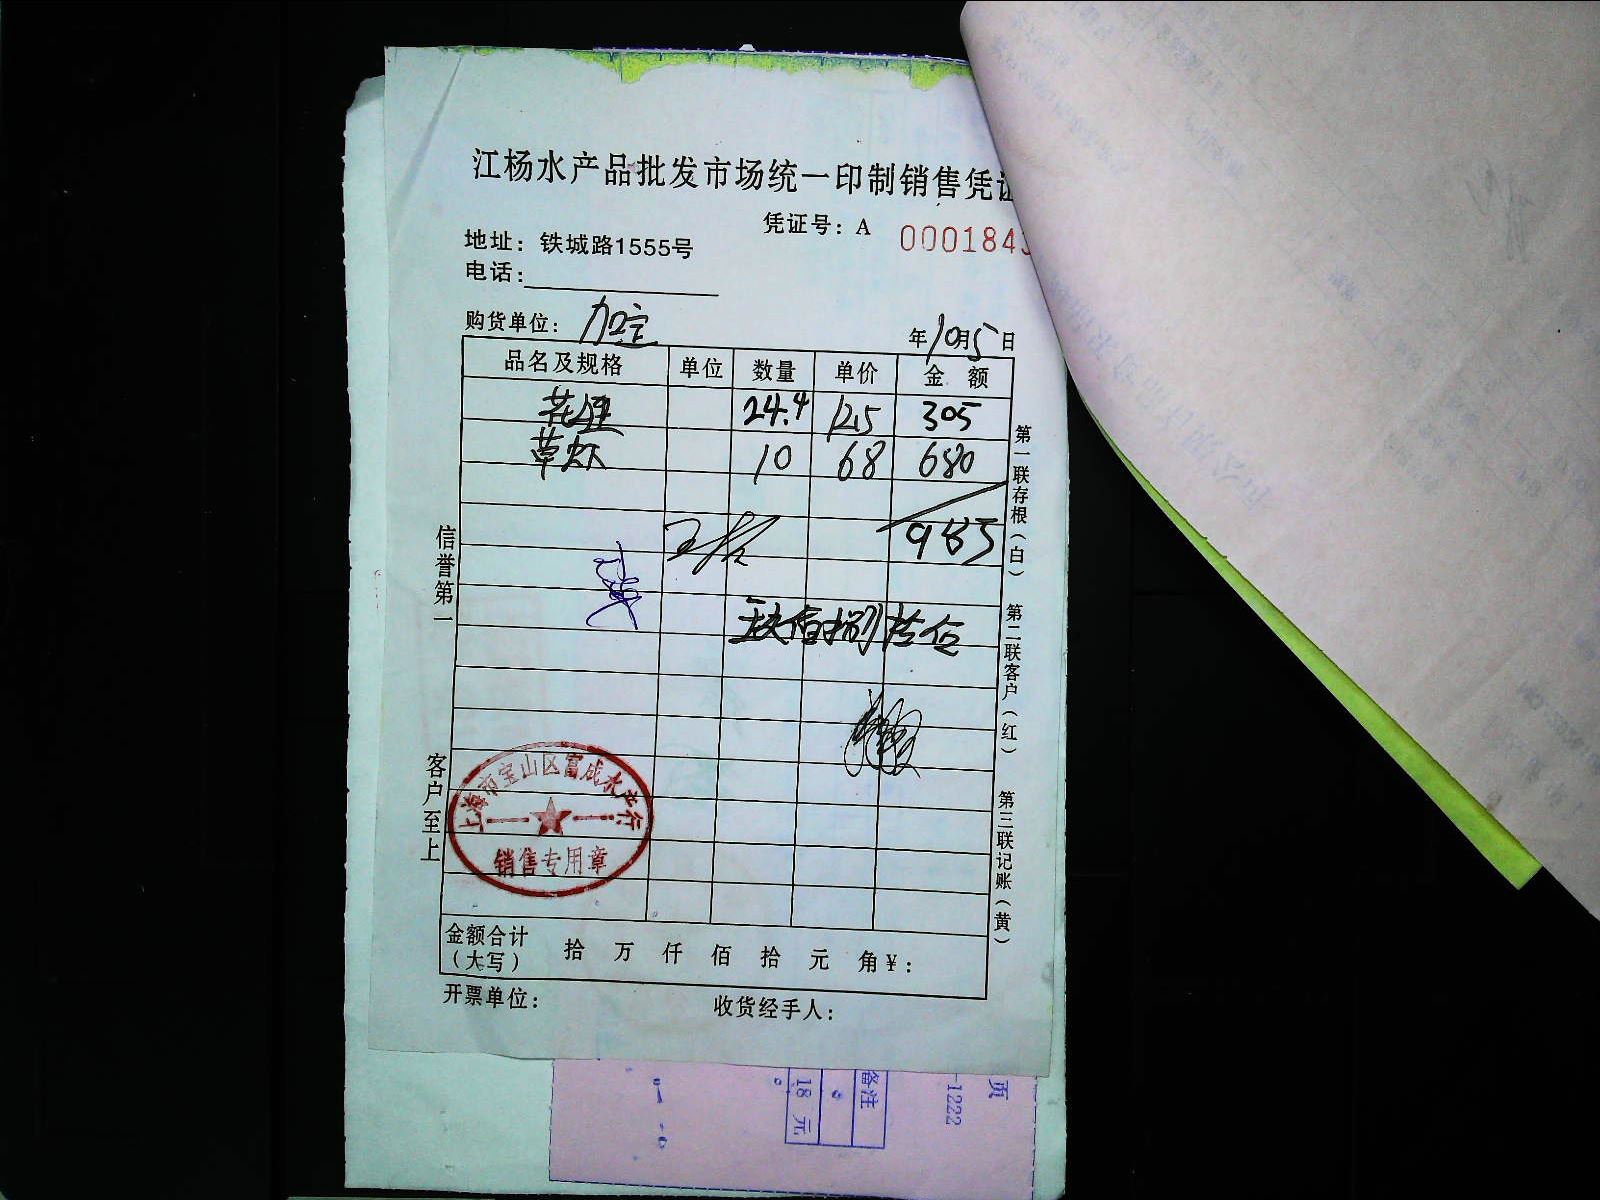 江杨水产品批发市场统一印制销售凭证
凭证号：A 000184
地址：铁城路1555号
电话：
购货单位：加定 年10月5日
品名及规格 单位 数量 单价 金额
花 24.4 12.5 305
草虾 10 68 680
985
玖佰捌拾伍
第一联存根（白）
第二联客户（红）
第三联记账（黄）
信誉第一
客户至上
上海市宝山区富成水产行
销售专用章
金额合计（大写） 拾 万 仟 佰 拾 元 角￥：
开票单位： 收货经手人：
备注
18 元
页
-1222